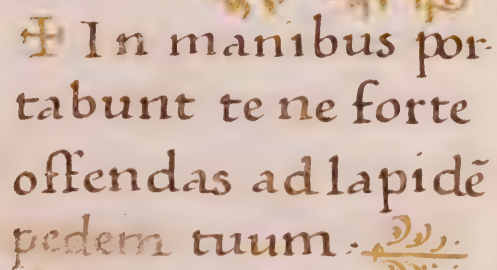 ✠ In manibus por-
tabunt te ne forte
offendas ad lapidē
pedem tuum .